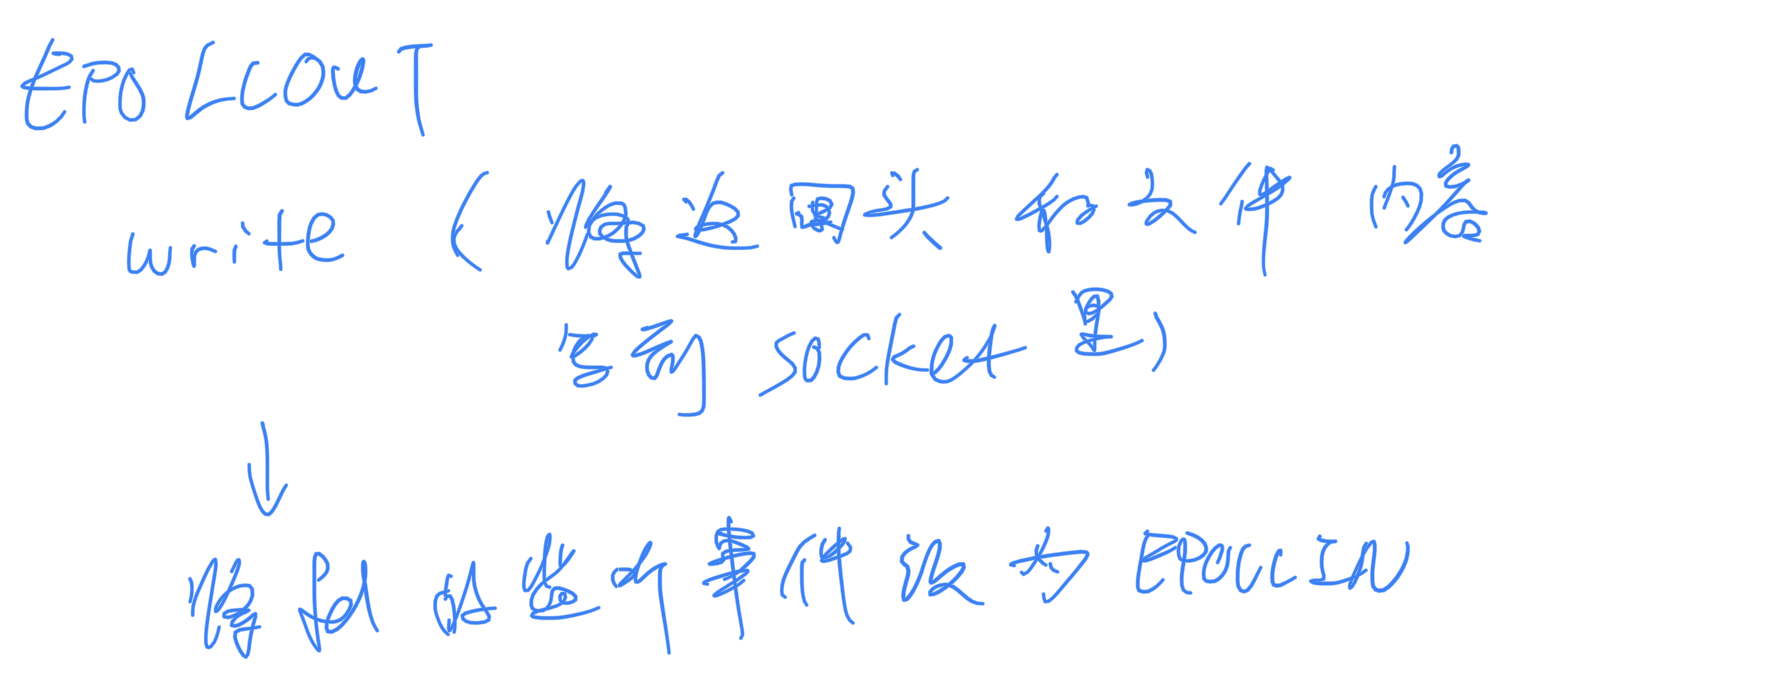 EPOLLOUT
write (将返回头和文件内容
写到socket里)
↓
将fd的监听事件设为EPOLLIN